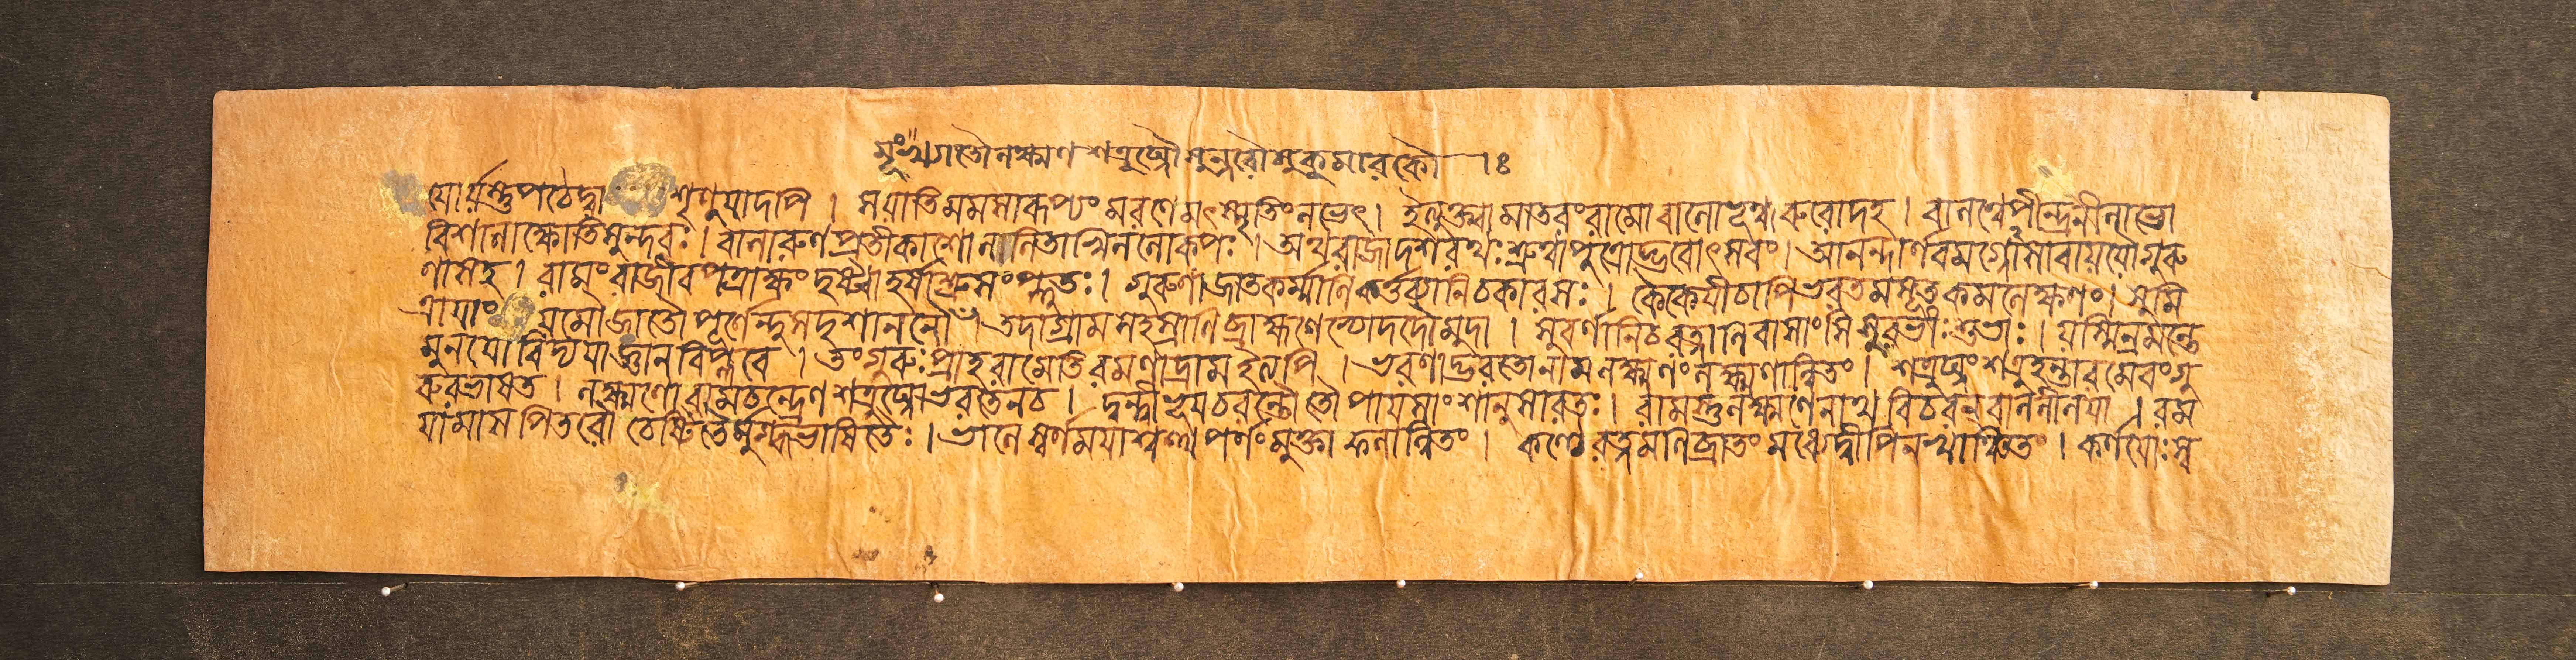 লক্ষ্মণ শত্রুঘ্নৌ সুন্দরৌ সুকুমারকৌ ।ঃ
যোর্য্যস্তুপঠেদ্বা শৃণুয়াদপি । সয়াতিমমসারূপ্যং মরণে মৎস্মৃতিংলভেৎ। ইত্যুক্ত্বা মাতরংরামো বালোভূত্বা রুরোদহ । বালত্বেপীন্দ্রনীলাভো
বিশালাক্ষোতিসুন্দরঃ। বালারুণপ্রতীকাশো লালিতাখিললোকপঃ । অথরাজাদশরথঃ শ্রুত্বাপুত্রোদ্ভবোৎসবং। আনন্দার্ণবমগ্নোসাবায়যৌগুরু
ণাসহ । রামংরাজীবপত্রাক্ষং দৃষ্ট্বাহর্ষাশ্রুসংপ্লুতঃ। গুরুণা জাতকর্ম্মাণি কর্ত্তব্যানিচকারসঃ । কৈকেযীচাপিভরতমসূত কমলেক্ষণং। সুমি
ত্রাযাং যমৌজাতৌ পূর্ণেন্দুসদৃশাননৌ তদাগ্রামসহস্রাণি ব্রাহ্মণেভ্যোদদৌমুদা । সুবর্ণানিচরত্নানি বাসাংসি সুরভীঃ শুভাঃ। যস্মিন্রমন্তে
মুনযো বিদ্যযাজ্ঞান বিপ্লবে । তংগুরুঃপ্রাহ রামেতিরমণাদ্রাম ইত্যপি । ভরণাদ্ভরতোনামলক্ষ্মণংলক্ষ্মণান্বিতং। শত্রুঘ্নং শত্রুহন্তারমেবংগু
রুরভাষত । লক্ষ্মণোরামচন্দ্রেণ শত্রুঘ্নোভরতেনচ । দ্বন্দ্বীভূযচরন্তৌ তৌ পাযসাংশানুসারতঃ। রামস্তুলক্ষ্মণেনাথ বিচরন্ বাললীলযা । রম
যামাসপিতরৌ চেষ্টিতৈর্মুগ্ধভাষিতৈঃ। ভালে স্বর্ণমযাশ্বত্থপর্ণংমুক্তাফলান্বিতং । কণ্ঠেরত্নমণিব্রাতং মধ্যেদ্বীপিনখাঞ্চিতং । কর্ণযোঃস্ব